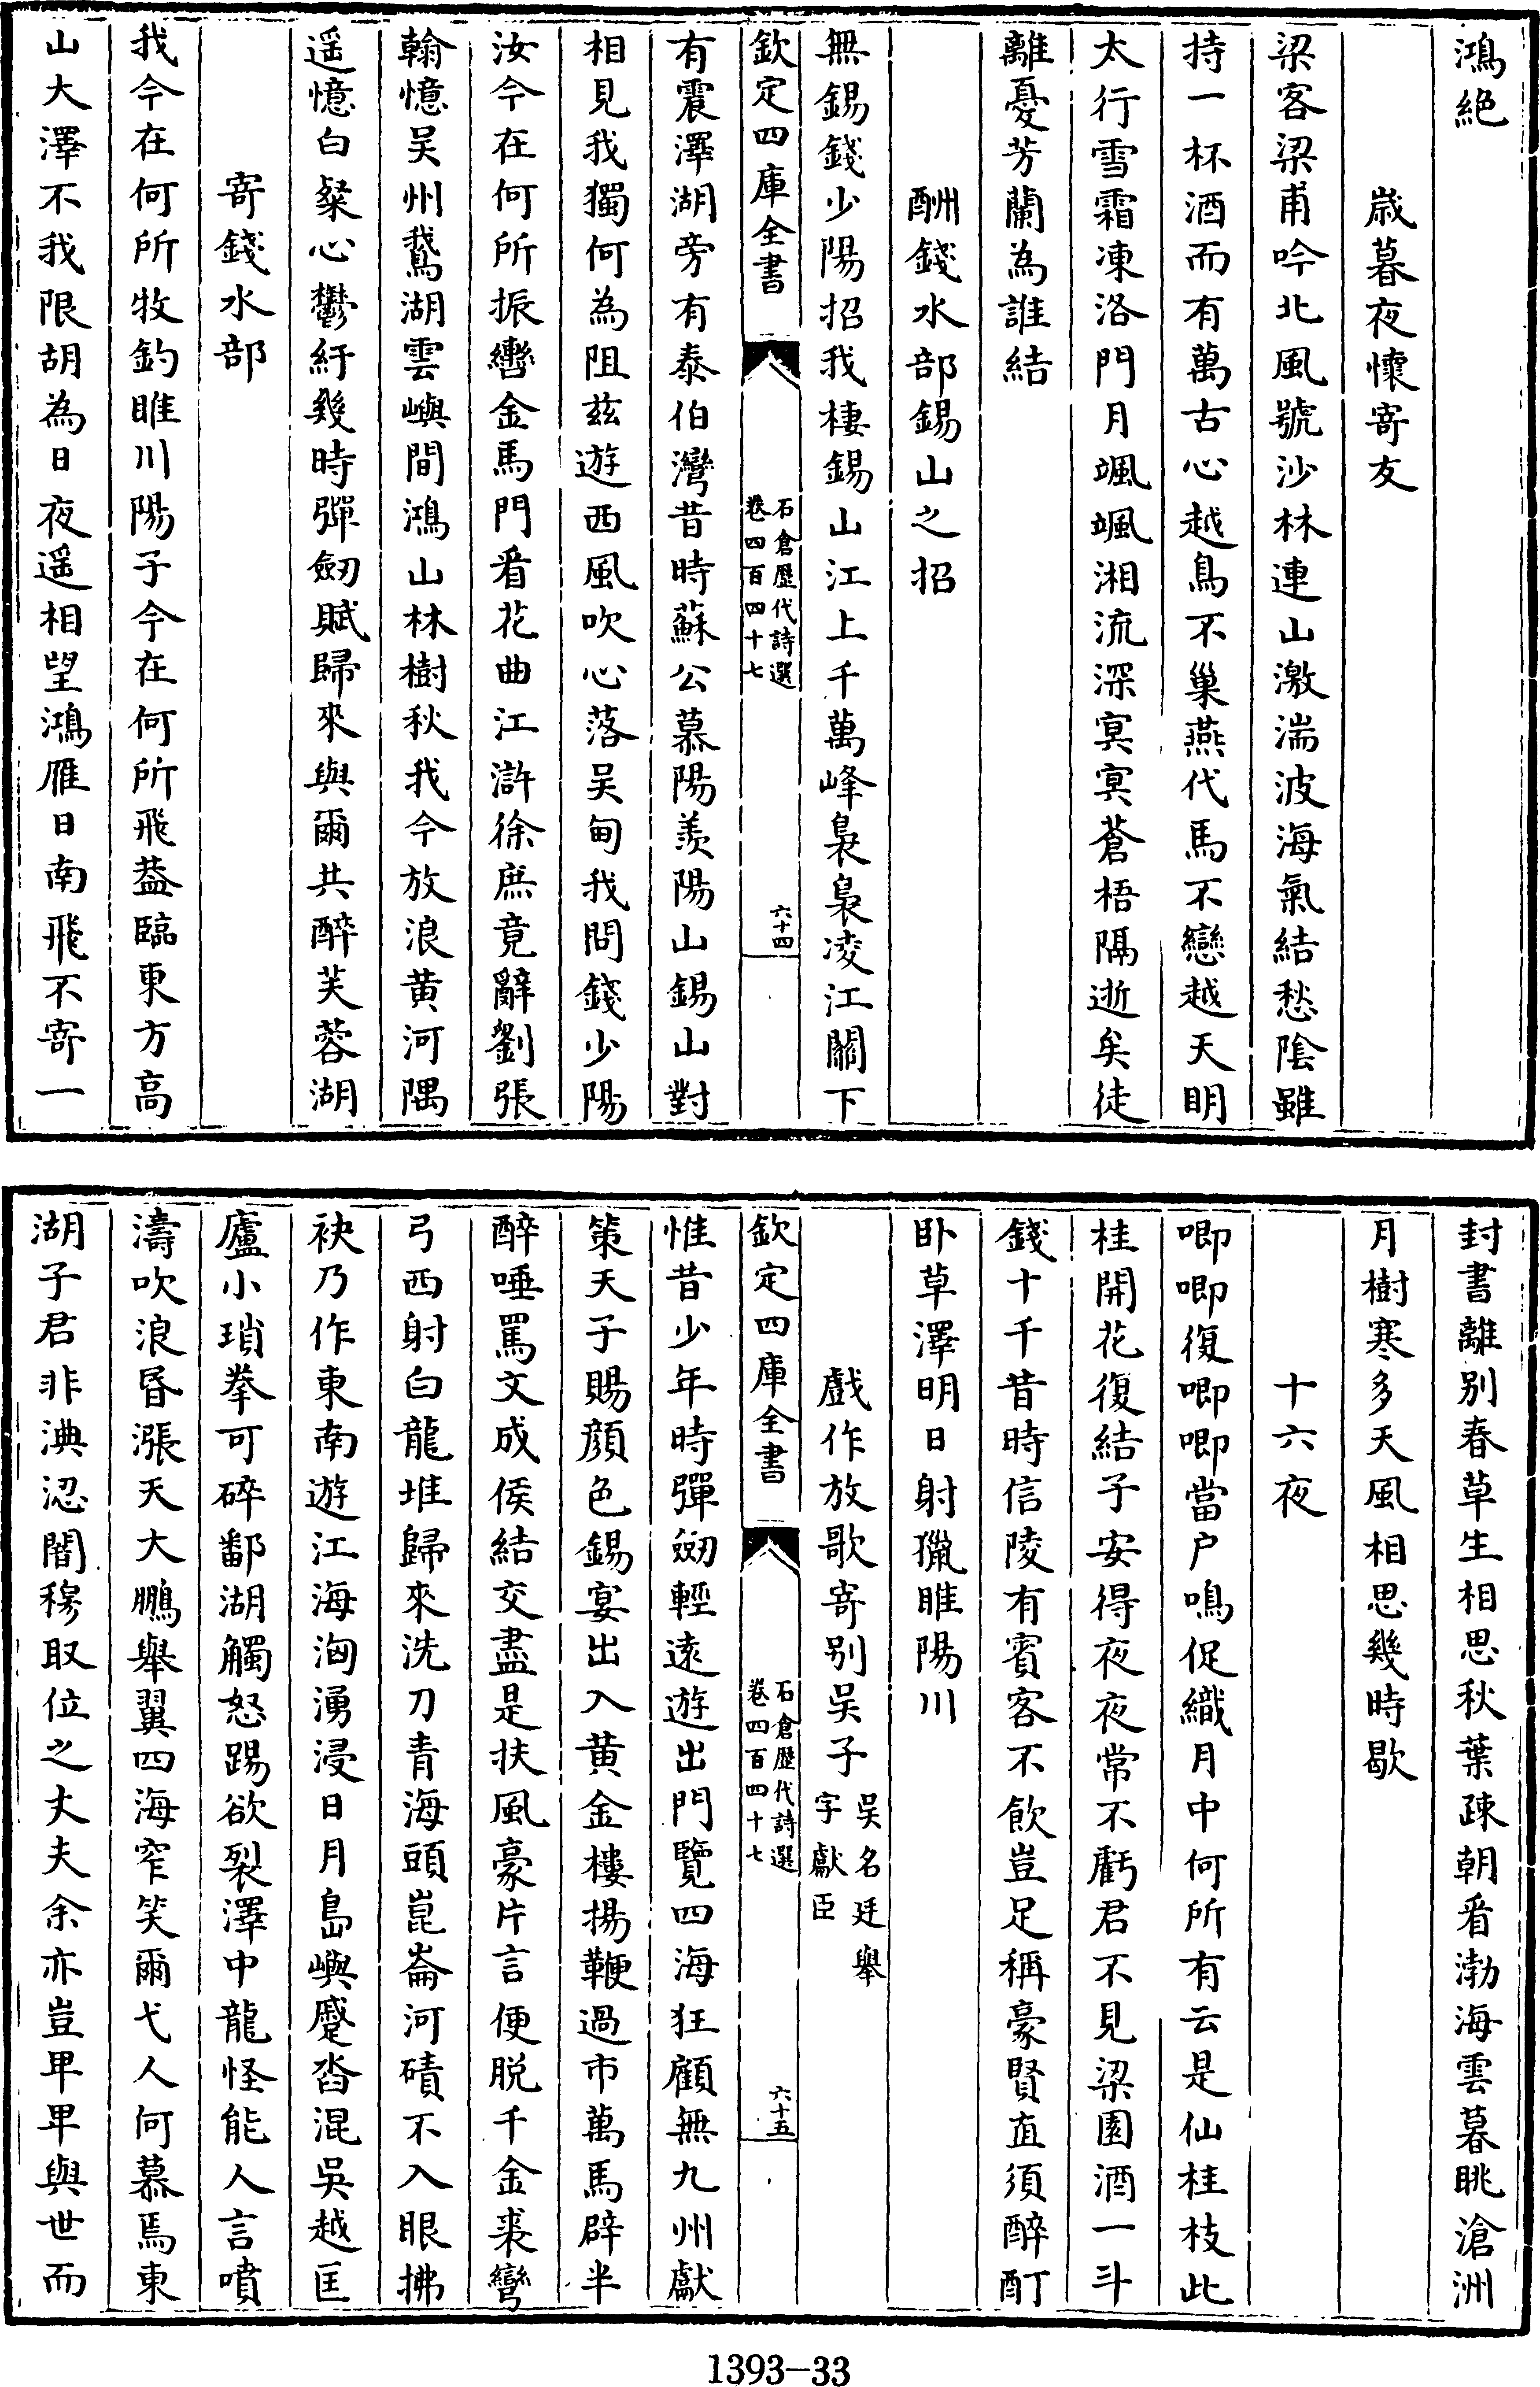 鴻絶
歲暮夜懷寄友
梁客梁甫吟北風號沙林連山激湍波海氣結愁陰雖
持一杯酒而有萬古心越鳥不巢燕代馬不戀越天明
太行雪霜凍洛門月颯颯湘流深冥冥蒼梧隔逝矣徒
離憂芳蘭為誰結
酬錢水部錫山之招
無錫錢少陽招我棲錫山江上千萬峰裊裊凌江關下
欽定四庫全書
石倉歷代詩選
卷四百四十七
六十四
有震澤湖旁有泰伯灣昔時蘇公慕陽羨陽山錫山對
相見我獨何為阻兹遊西風吹心落吴甸我問錢少陽
汝今在何所振轡金馬門看花曲江滸徐庶竟辭劉張
翰憶吴州鵞湖雲嶼間鴻山林樹秋我今放浪黄河隅
遥憶白粲心鬱紆幾時彈劒賦歸來與爾共醉芙蓉湖
寄錢水部
我今在何所牧釣睢川陽子今在何所飛葢臨東方高
山大澤不我限胡為日夜遥相望鴻雁日南飛不寄一
封書離别春草生相思秋葉疎朝看渤海雲暮眺滄洲
月樹寒多天風相思幾時歇
十六夜
唧唧復唧唧當户鳴促織月中何所有云是仙桂枝此
桂開花復結子安得夜夜常不虧君不見梁園酒一斗
錢十千昔時信陵有賓客不飲豈足稱豪賢直須醉酊
卧草澤明日射獵睢陽川
戲作放歌寄别吴子
吴名廷舉
字獻臣
欽定四庫全書
石倉歷代詩選
卷四百四十七
六十五
惟昔少年時彈劒輕遠遊出門覽四海狂顧無九州獻
策天子賜顔色錫宴出入黄金樓揚鞭過市萬馬辟半
醉唾罵文成侯結交盡是扶風豪片言便脱千金裘彎
弓西射白龍堆歸來洗刀青海頭崑崙河磧不入眼拂
袂乃作東南遊江海洶湧浸日月島嶼蹙沓混吳越匡
廬小瑣拳可碎鄱湖觸怒踢欲裂澤中龍怪能人言噴
濤吹浪昏漲天大鵬舉翼四海窄笑爾弋人何慕焉東
湖子君非淟涊闇穆取位之丈夫余亦豈卑卑與世而
1393-33